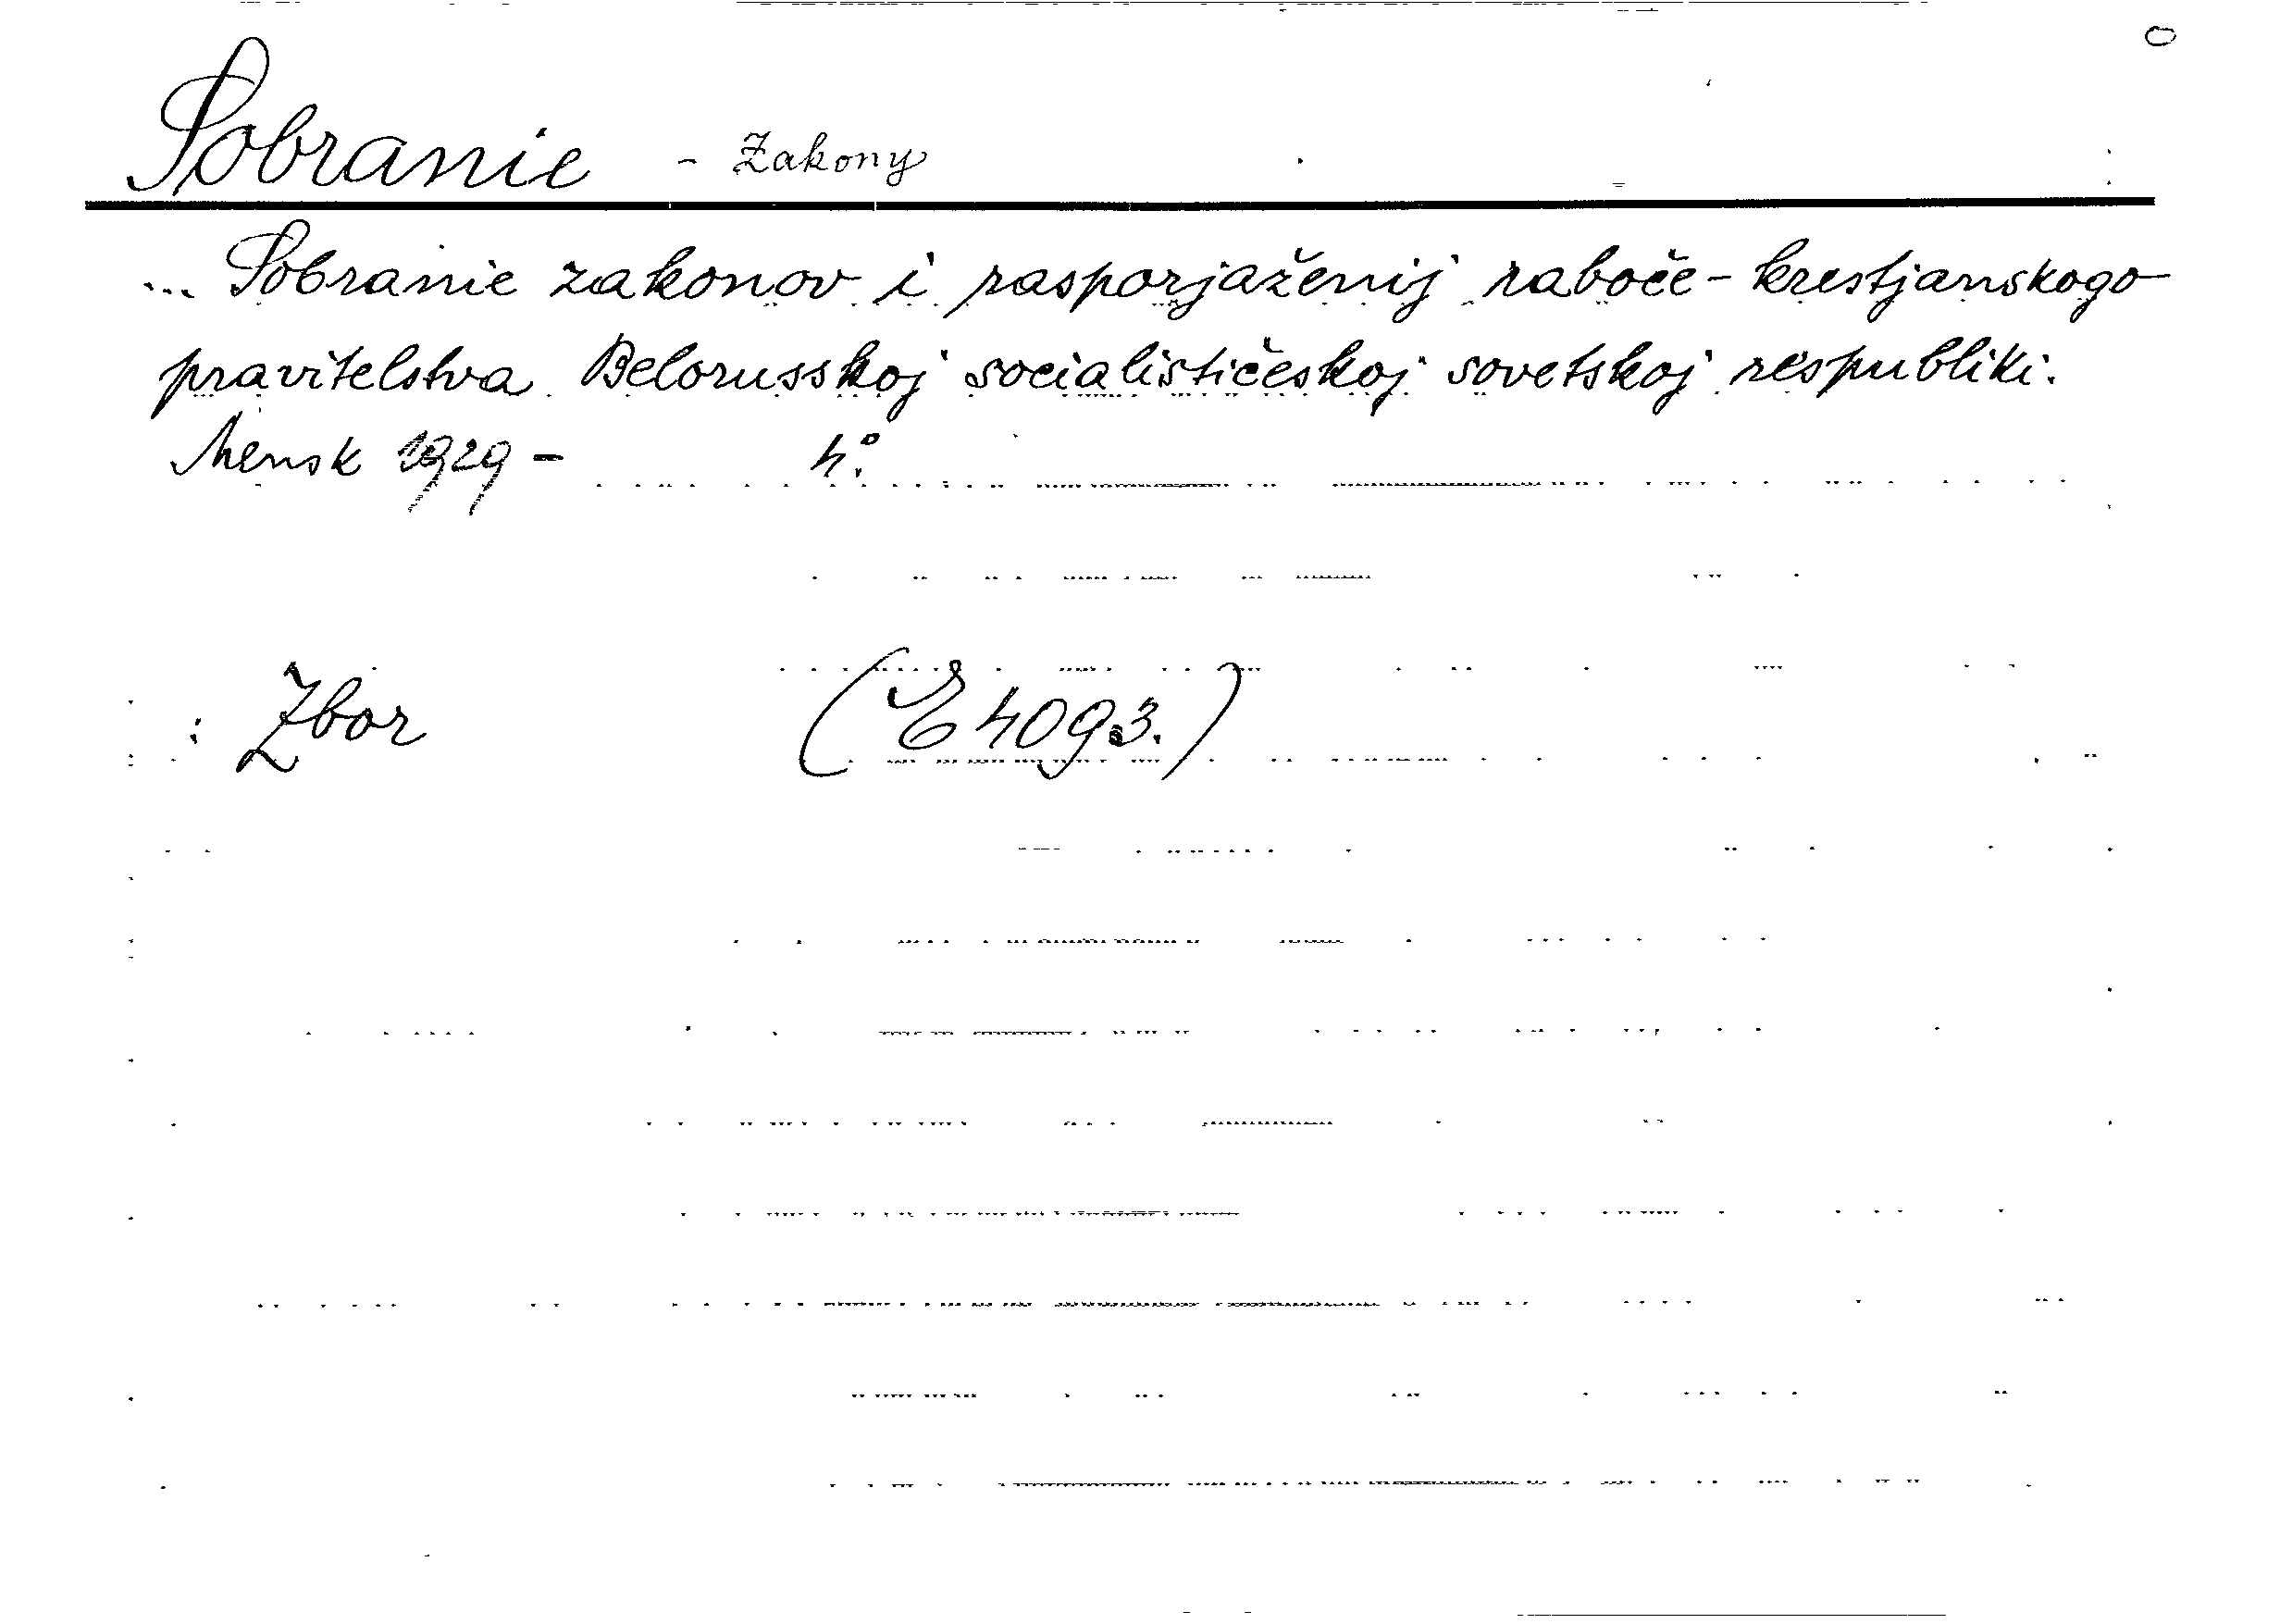 Sobranie - Zakony
... Sobranie zakonov i rasporjaženij raboče-krestjanskogo
pravitelstva Belorusskoj socialističeskoj sovetskoj respubliki.
Mensk 1929 - 4º.
: Zbor (E 4093.)